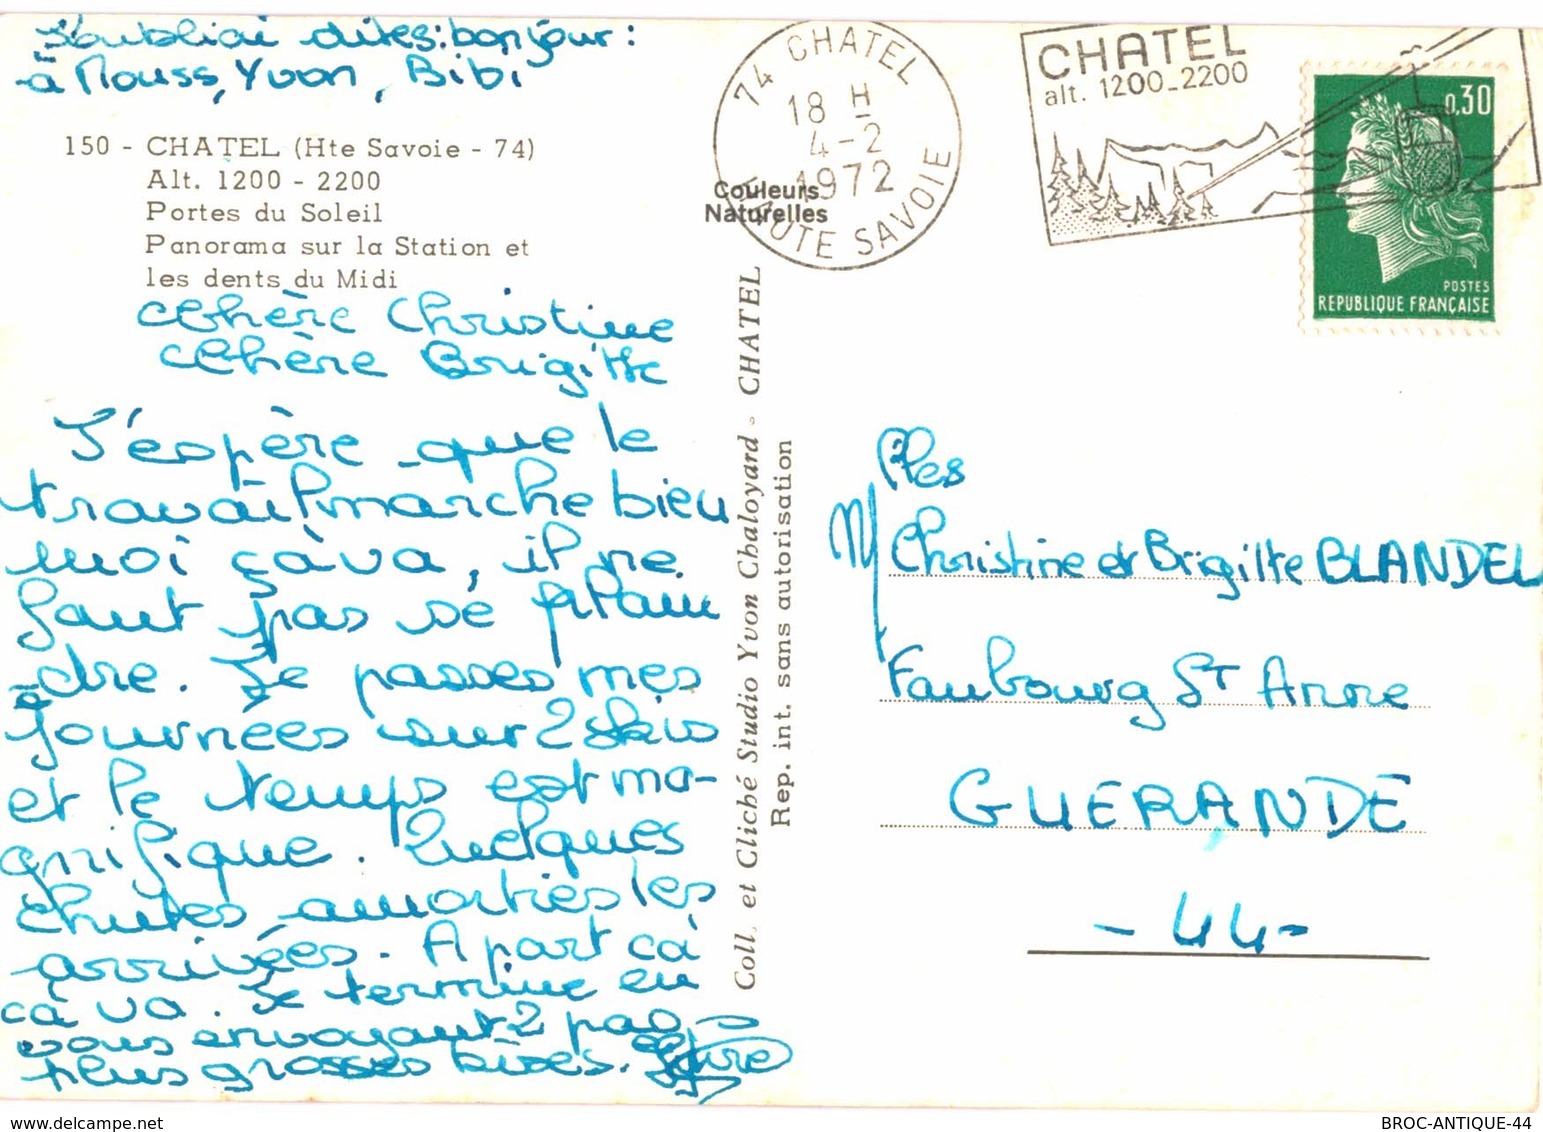 J'oubliai dites: bonjour:
à Mouss, Yvon, Bibi
150 - CHATEL (Hte Savoie - 74)
Alt. 1200 - 2200
Portes du Soleil
Panorama sur la Station et
les dents du Midi
Chère Christine
Chère Brigitte
J'espère que le
travail marche bien
moi ça va, il ne
faut pas se plain
dre. Je passes mes
journées sur 2 skis
et le temps est ma-
gnifique. Quelques
chutes amorties les
arrivées. A part ca
ca va. Je termine en
vous envoyant 2 pas
plus grosses bises.
74 CHATEL
18 H
4-2
1972
HAUTE SAVOIE
Couleurs
Naturelles
CHATEL
alt. 1200_2200
0,30
POSTES
REPUBLIQUE FRANÇAISE
Coll. et Cliché Studio Yvon Chaloyard - CHATEL
Rep. int. sans autorisation
Mlles
Christine et Brigitte BLANDEL
Faubourg St Anne
GUERANDE
- 44 -
BROC-ANTIQUE-44